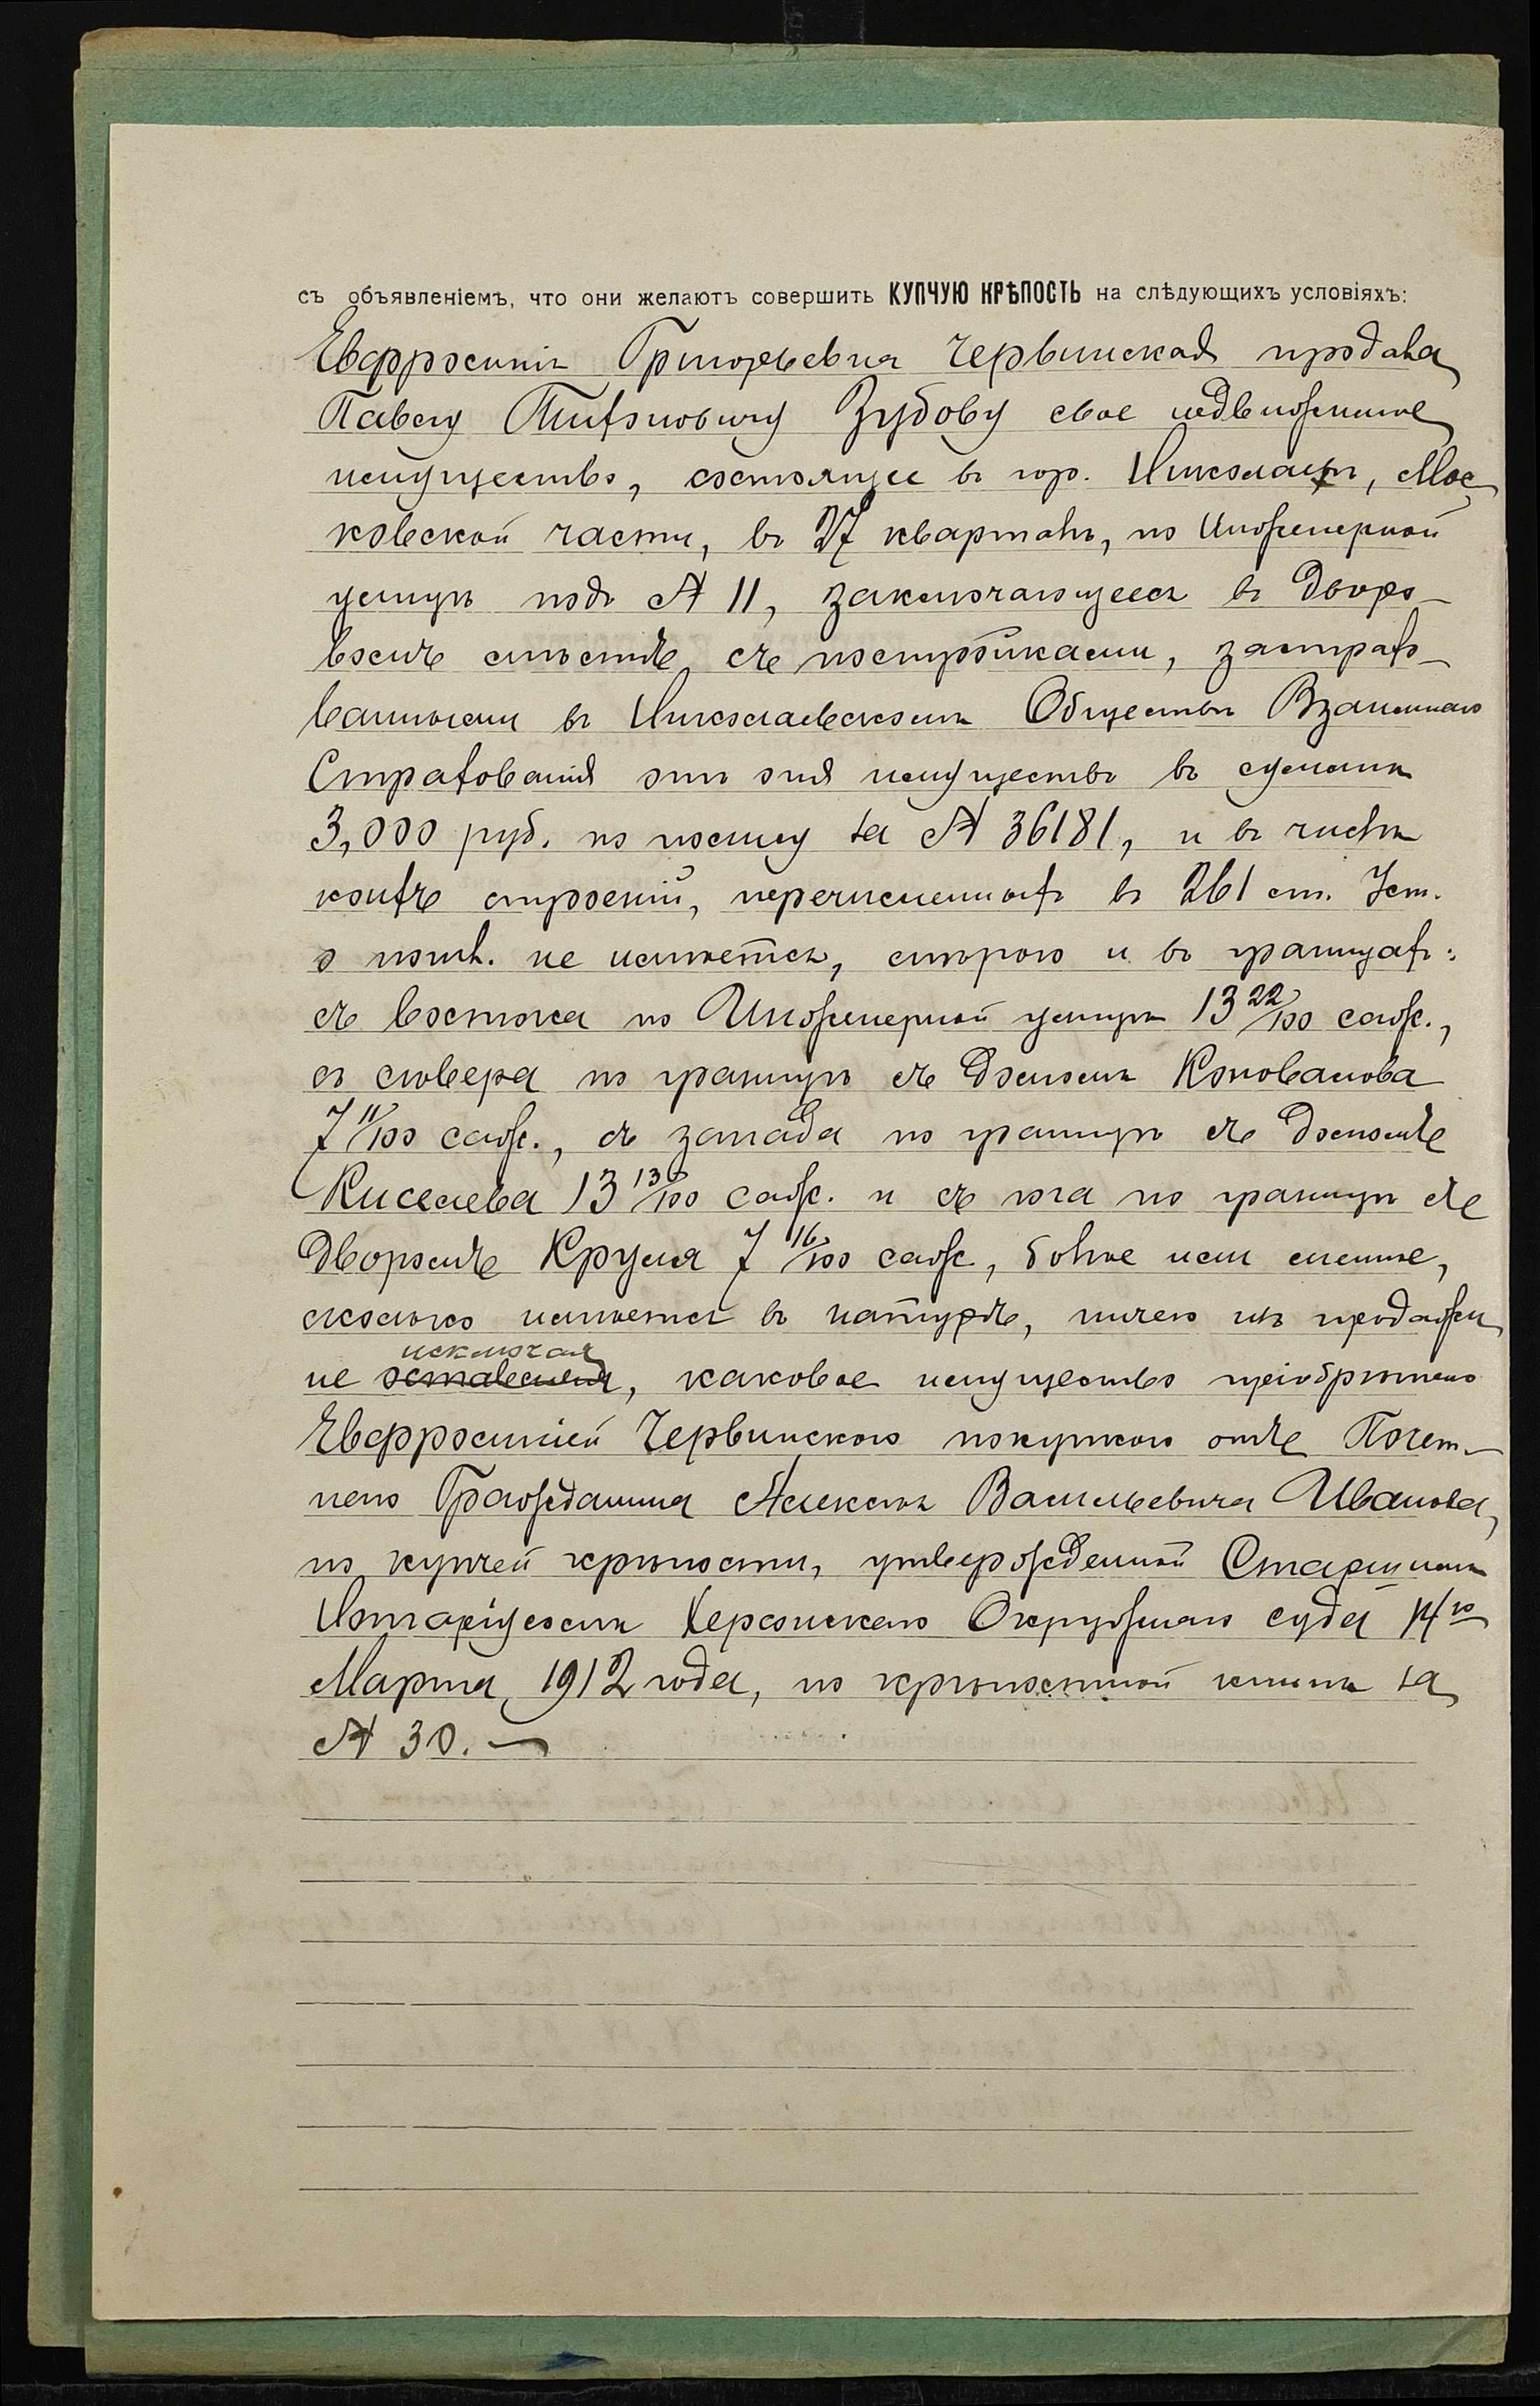 съ объявленіемъ, что они желаютъ совершить КУПЧУЮ КРѢПОСТЬ на слѣдующихъ условіяхъ:
Евфросинія Григорьевна Червинская продала
Павлу Тихоновичу Зубову свое недвижимое
имущество, состоящее въ гор. Николаевѣ, Мос-
ковской части, въ 27 кварталѣ, по Инженерной
улицѣ подъ № 11, заключающееся въ дворо-
вомъ мѣстѣ съ постройками, застрахо-
ванными въ Николаевскомъ Обществѣ Взаимнаго
Страхованія отъ огня имуществъ въ суммѣ
3,000 руб. по полису за № 36181, и въ числѣ
коихъ строеній, перечисленныхъ въ 261 ст. Уст.
о пошл. не имѣется, мѣрою и въ границахъ:
съ востока по Инженерной улицѣ 13 22/100 саж.,
съ сѣвера по границѣ съ домомъ Коновалова
7 11/100 саж., съ запада по границѣ съ домомъ
Киселева 13 13/100 саж. и съ юга по границѣ съ
дворомъ Круля 7 16/100 саж., болѣе или менѣе,
сколько имѣется въ натурѣ, ничего изъ продажи
исключая
не оставляя, каковое имущество пріобрѣтено
Евфросиніей Червинскою покупкою отъ Почет-
наго Гражданина Алексѣя Васильевича Иванова,
по купчей крѣпости, утвержденной Старшимъ
Нотаріусомъ Херсонскаго Окружнаго суда 14го
Марта 1912 года, по крѣпостной книгѣ за
№ 30.